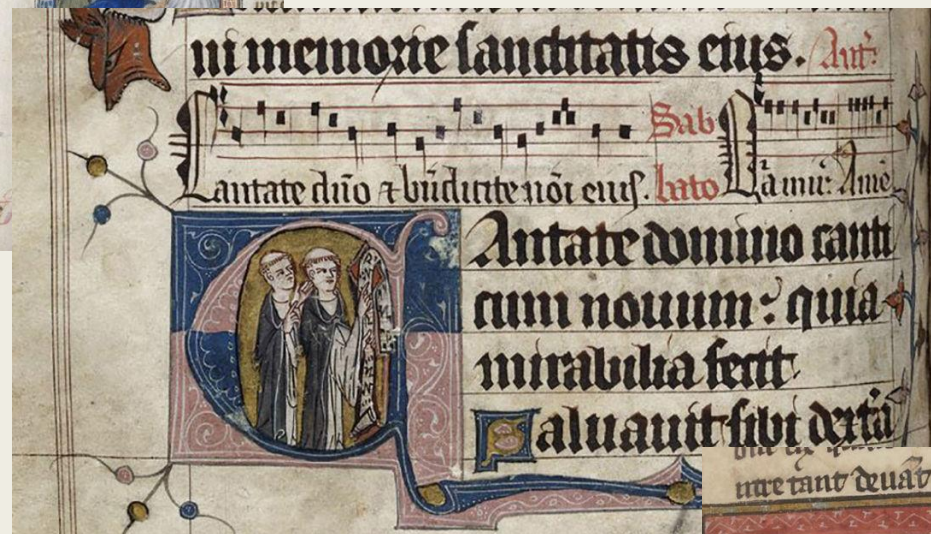 ni memorie sanctitatis eius. Ant.
Sab
Cantate dño ⁊ bñdicite nōi eius. bato
CAntate domino canti
cum nouum : quia
mirabilia fecit
Saluauit sibi dextā
ntre tant deuāt